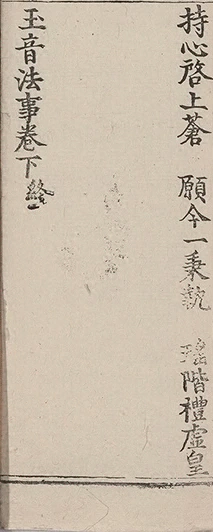 持心啓上蒼 願今一秉 階禮虛皇
玉音法事卷下